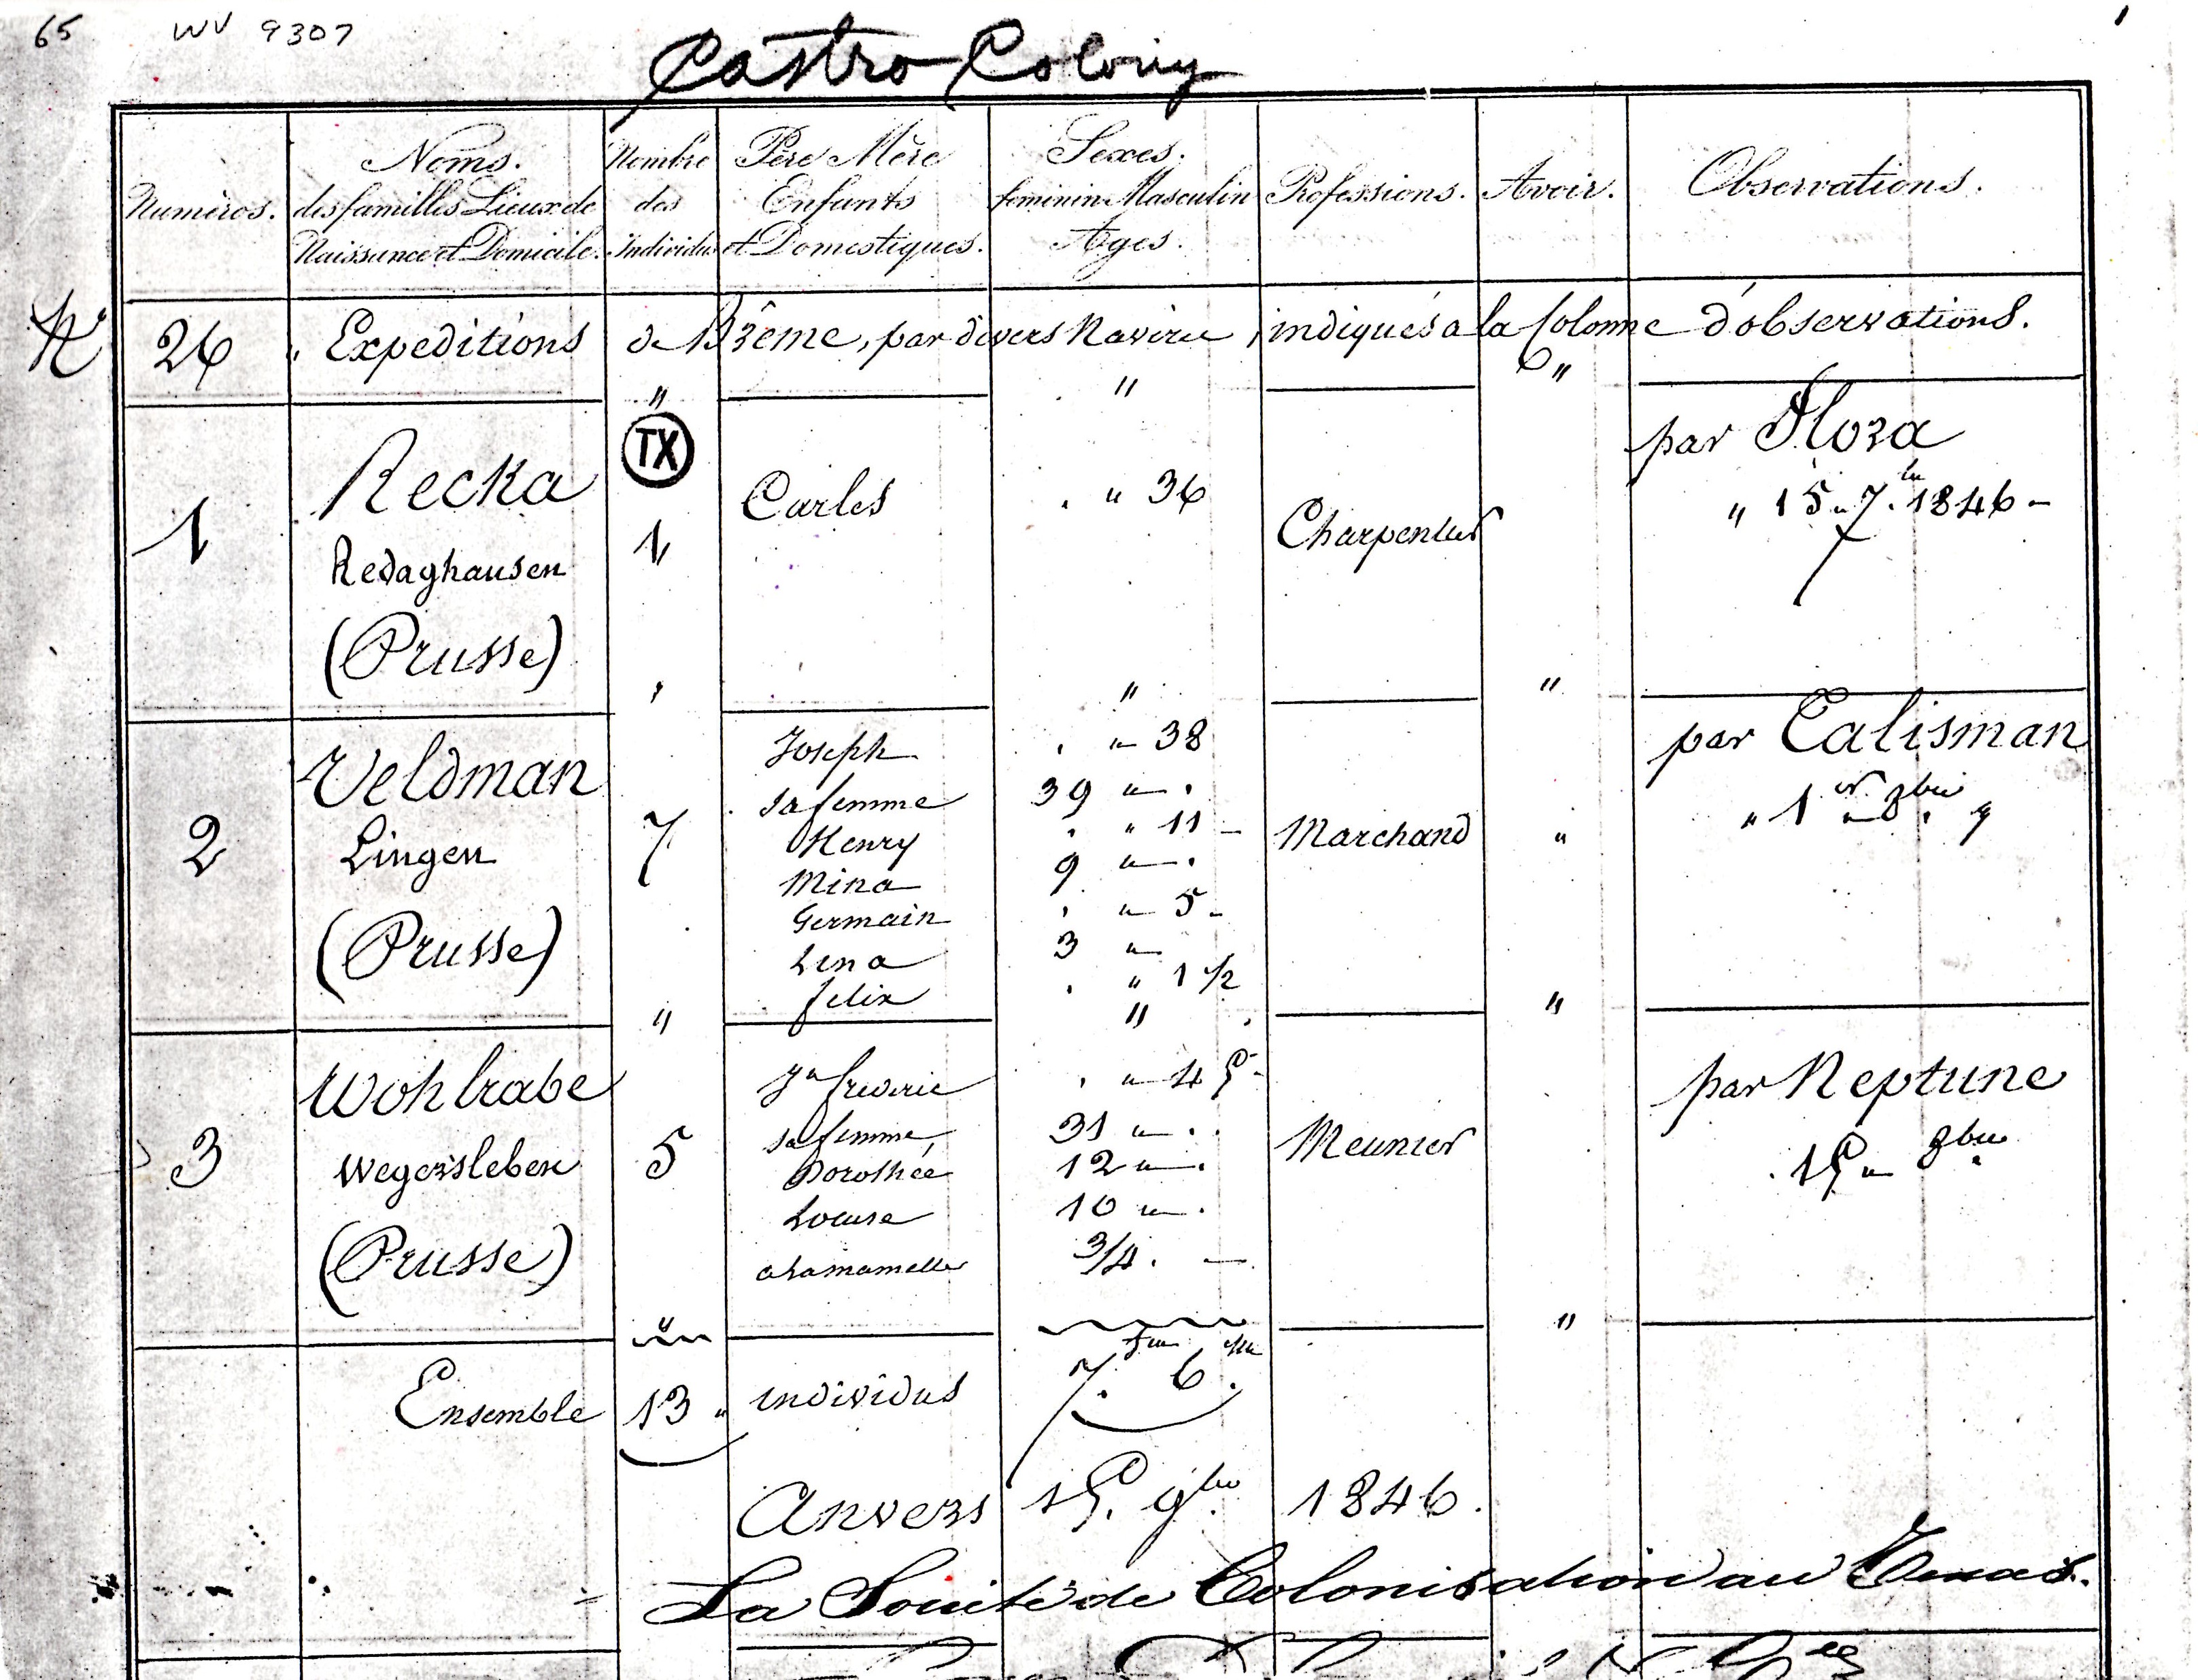 65 WV 9307
Castro Colony
Numéros.
Noms.
des familles Lieux de
Naissance et Domicile.
Nombre
des
Individus
Père Mère
Enfants
et Domestiques.
Sexes.
feminin Masculin
Ages.
Professions.
Avoir.
Observations.
N° 26 " Expeditions de Brême, par divers Navires, indiqués a la Colonne d'observations.
" " "
TX
1 Recka 1 Carles " 36 Charpentier par Flora
Redaghausen " 15 - 7bre 1846 -
(Prusse)
" " "
2 Veldman 7 Marchand " par Talisman
Lingen " 1er 8bre "
(Prusse)
Joseph " 38
sa femme 39 "
Henry " 11
Mina 9 "
Germain " 5
Lena 3 "
felix " 1 1/2
" " "
3 Wohlrabe 5 Meunier par Neptune
Wegersleben 15 " 8bre
(Prusse)
Jn frederic " 45
sa femme 31 "
Dorothée 12 "
Louise 10 "
a la mamelle 3/4
" "
Ensemble 13 " individus 7. fem 6. Ma
Anvers 15. 9bre 1846.
La Société de Colonisation au Texas.